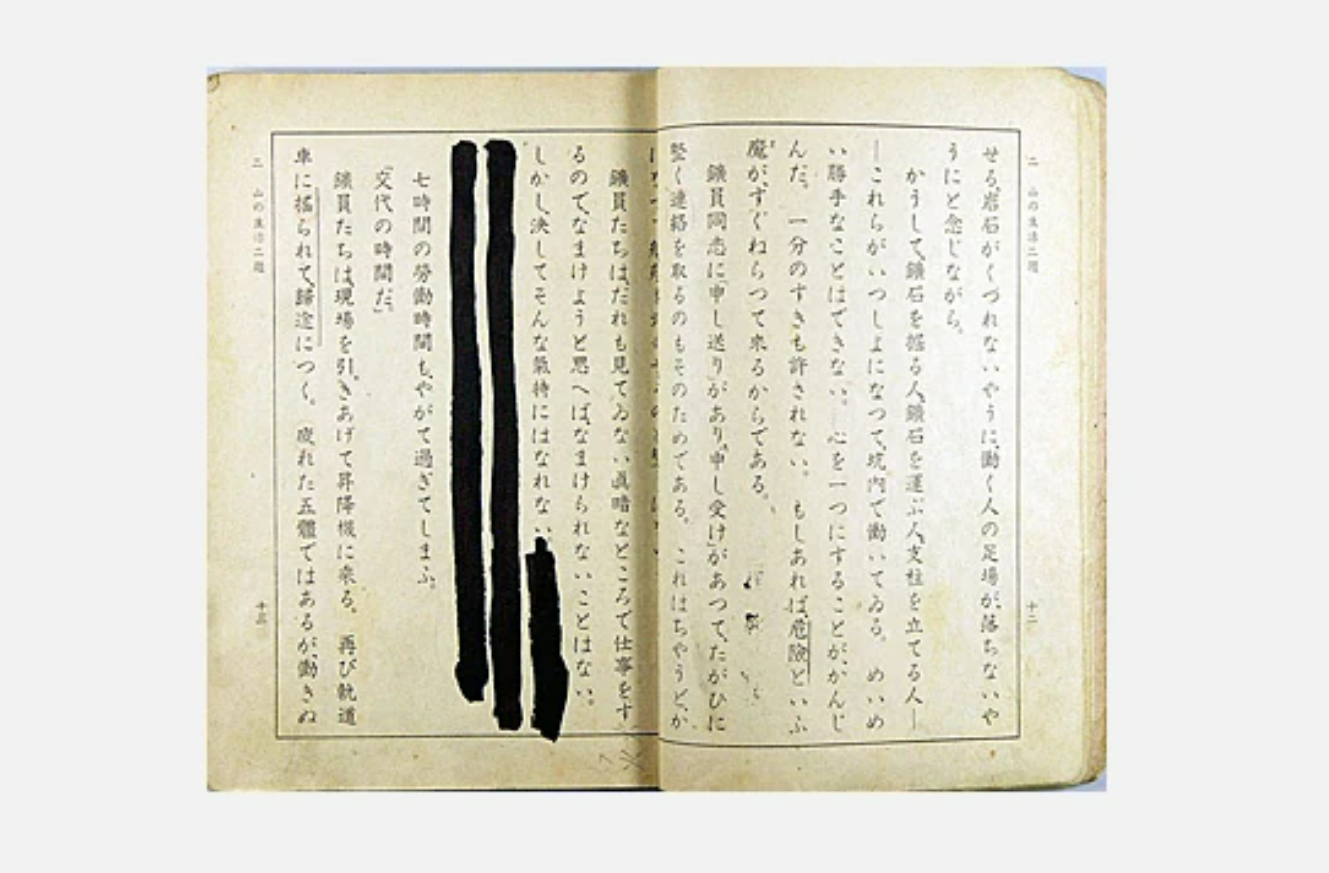 二 山の生活二題
十二
せる岩石がくづれないやうに、働く人の足場が落ちないや
うにと念じながら。
かうして、鑛石を掘る人、鑛石を運ぶ人、支柱を立てる人―
―これらがいつしよになつて、坑内で働いてゐる。めいめ
い勝手なことはできない。心を一つにすることが、かんじ
んだ。一分のすきも許されない。もしあれば、危險といふ
魔が、すぐねらつて來るからである。
鑛員同志に「申し送り」があり、「申し受け」があつて、たがひに
堅く連絡を取るのもそのためである。これはちやうど、か
鑛員たちは、だれも見てゐない眞暗なところで仕事をす
るので、なまけようと思へば、なまけられないことはない。
しかし、決してそんな氣持にはなれない。
七時間の勞働時間も、やがて過ぎてしまふ。
「交代の時間だ。」
鑛員たちは、現場を引きあげて昇降機に來る。再び軌道
車に搖られて、歸途につく。疲れた五體ではあるが、働きぬ
二 山の生活二題
十三